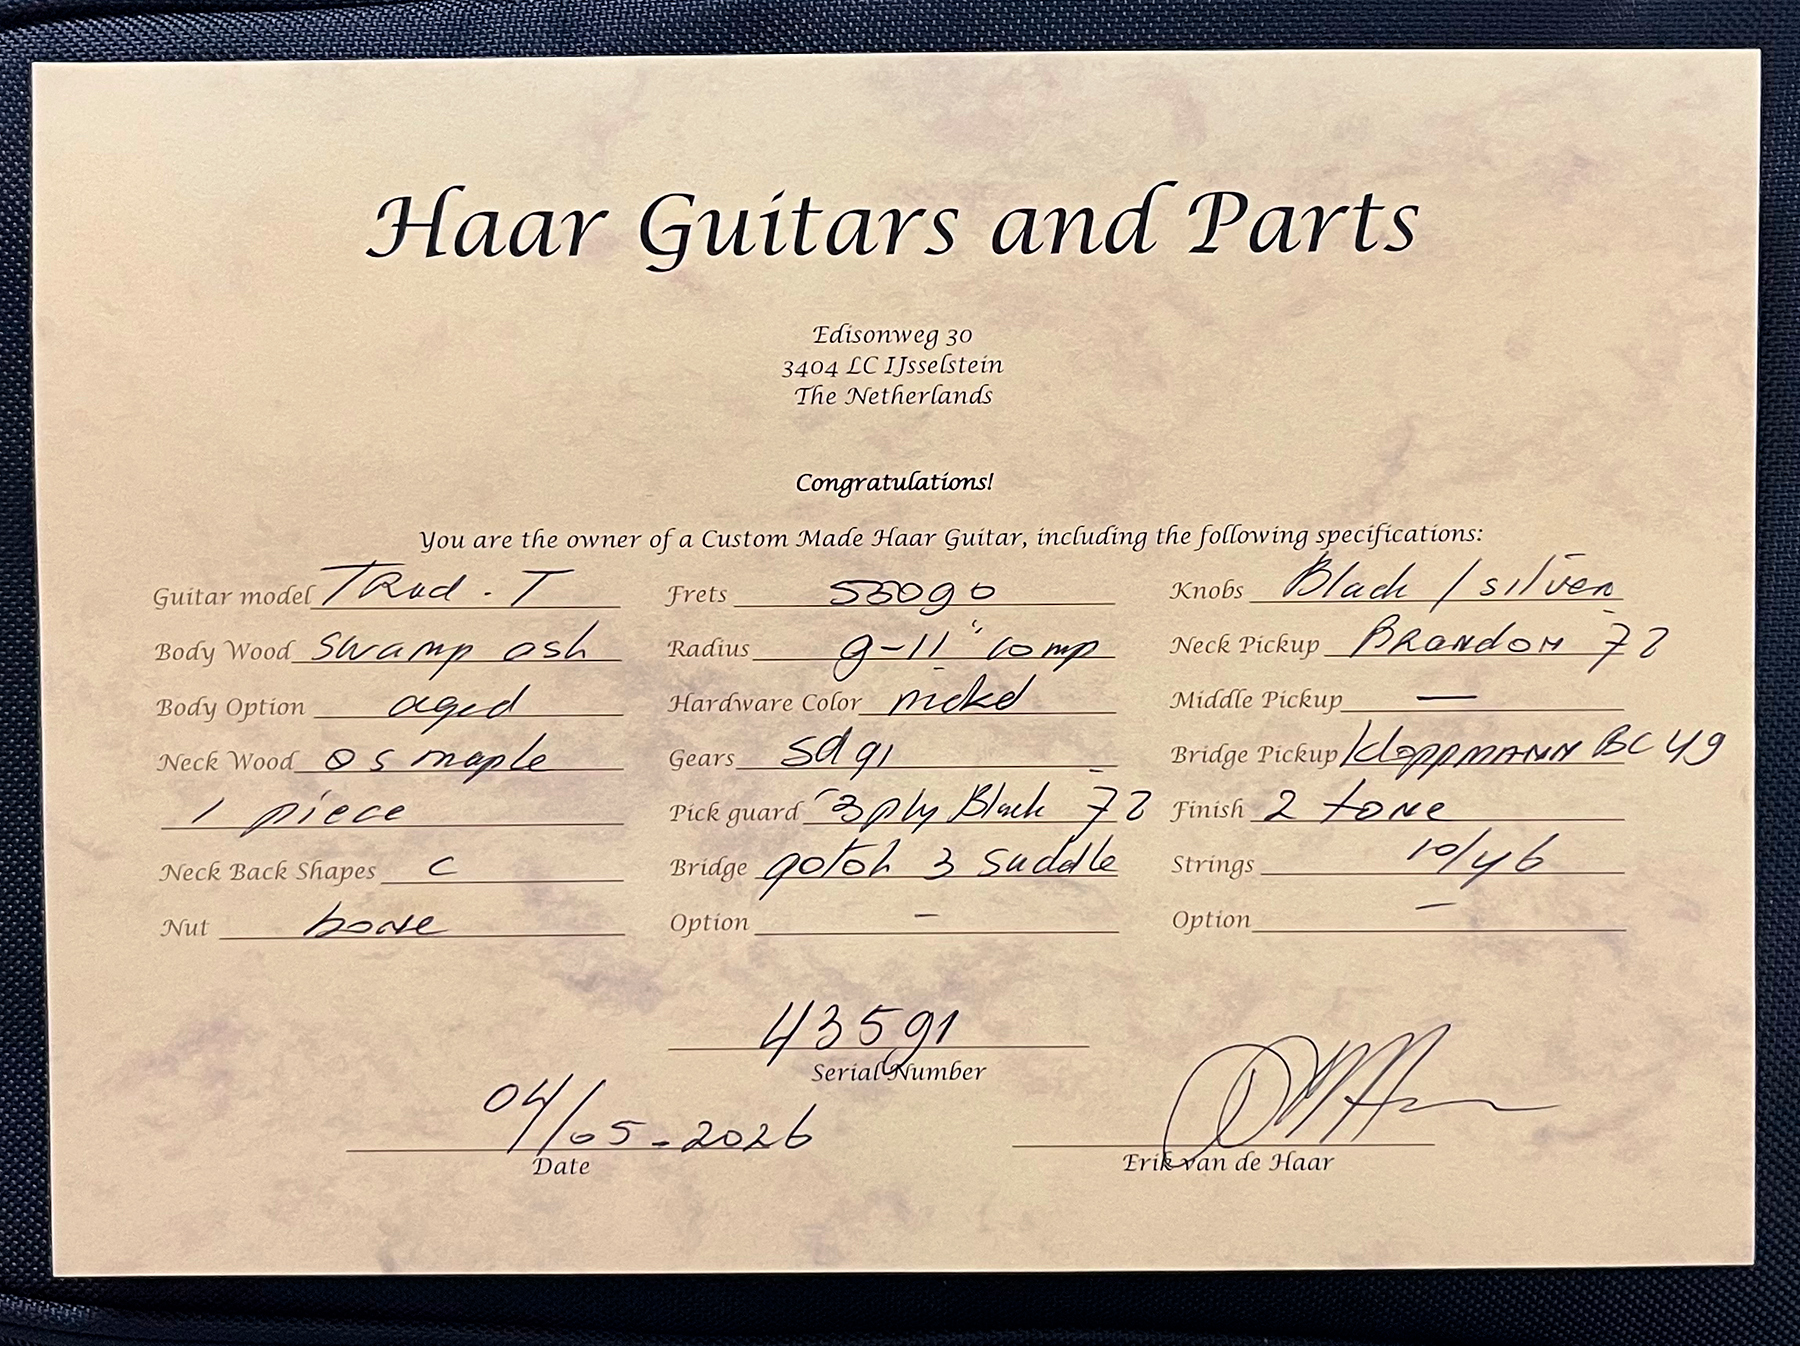 Haar Guitars and Parts
Edisonweg 30
3404 LC IJsselstein
The Netherlands
Congratulations!
You are the owner of a Custom Made Haar Guitar, including the following specifications:
Guitar model TRad. T
Body Wood swamp ash
Body Option aged
Neck Wood QS maple
1 piece
Neck Back Shapes C
Nut bone
Frets 55090
Radius 9-11" comp
Hardware Color
Gears SD91
Pick guard 3ply Black 72
Bridge gotoh 3 saddle
Option —
Knobs Black / silver
Neck Pickup Brandon 72
Middle Pickup —
Bridge Pickup Kloppmann BC 49
Finish 2 tone
Strings 10/46
Option —
43591
Serial Number
04/05-2026
Date
Erik van de Haar